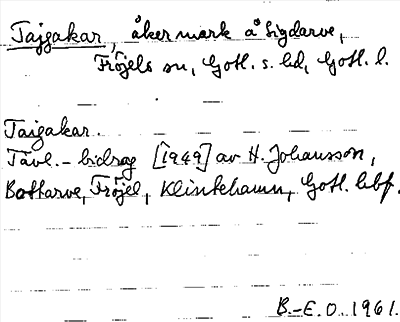 Tajgakar, åkermark å Sigdarve,
Fröjels sn, Gotl. s. hd, Gotl. l.
Taigakar.
Tävl.-bidrag [1949] av H. Johansson,
Bottarve, Fröjel, Klintehamn, Gotl. hbf.
B.-E. O. 1961.